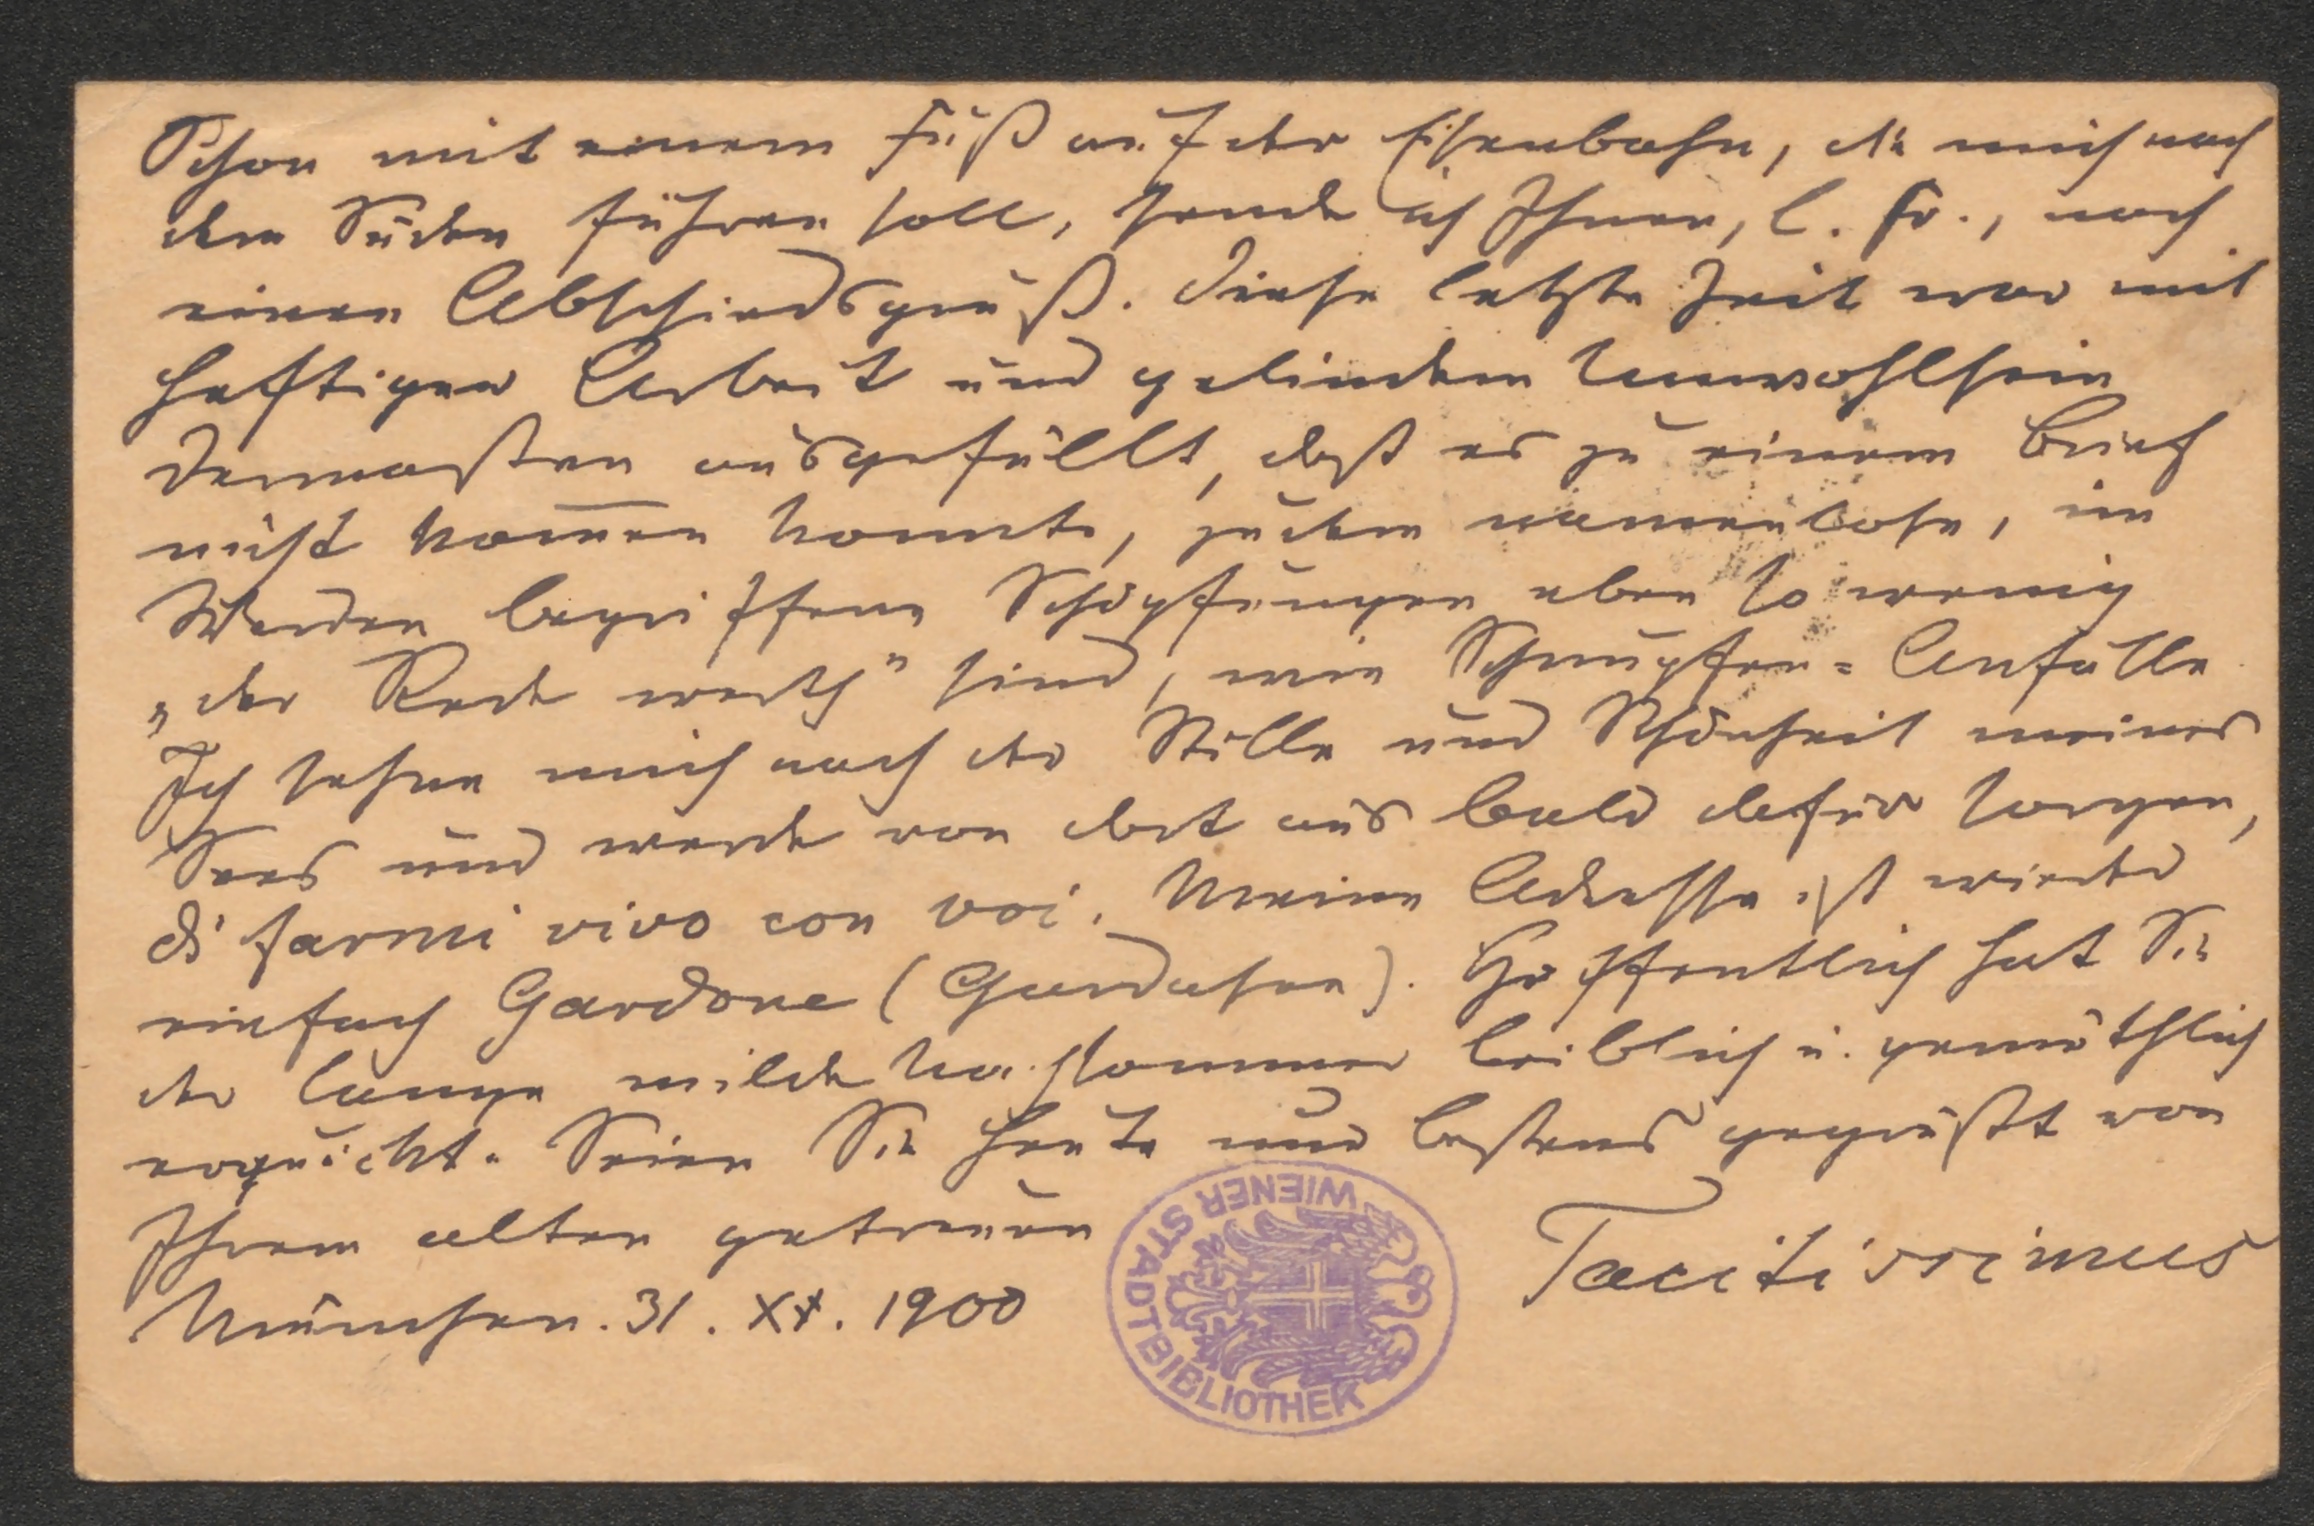 Schon mit einem Fuß auf der Eisenbahn, die mich nach
dem Süden führen soll, sende ich Ihnen, l. Fr., noch
einen Abschiedsgruß. Diese letzte Zeit war mit
heftiger Arbeit und gelindem Unwohlsein
dermaßen ausgefüllt, daß es zu einem Brief
nicht kom̅en konnte, zudem namenlose, im
Werden begriffene Schöpfungen eben so wenig
„der Rede werth" sind, wie Schnupfen=Anfälle
Ich sehne mich nach der Stille und Schönheit meines
Sees und werde von dort aus bald dafür sorgen,
di farmi vivo con voi. Meine Adresse ist wieder
einfach Gardone (Gardasee). Hoffentlich hat Sie
der lange milde leiblich u. gemüthlich
erquickt. Seien Sie heute nur bestens gegrüßt von
Ihrem alten getreuen
Tacitissimus
München. 31. 1900
WIENER STADTBIBLIOTHEK